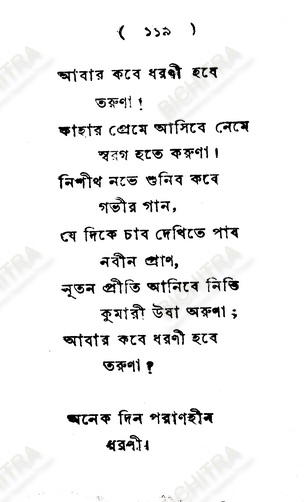 ( ১১৯ )
আবার কবে ধরণী হবে
তরুণা !
কাহার প্রেমে আসিবে নেমে
স্বরগ হতে করুণা।
নিশীথ নভে শুনিব কবে
গভীর গান,
যে দিকে চাব দেখিতে পাব
নবীন প্রাণ,
নূতন প্রীতি আনিবে নিতি
কুমারী উষা অরুণা ;
আবার কবে ধরণী হবে
তরুণা ?
অনেক দিন পরাণহীন
ধরণী।
BICHITRA